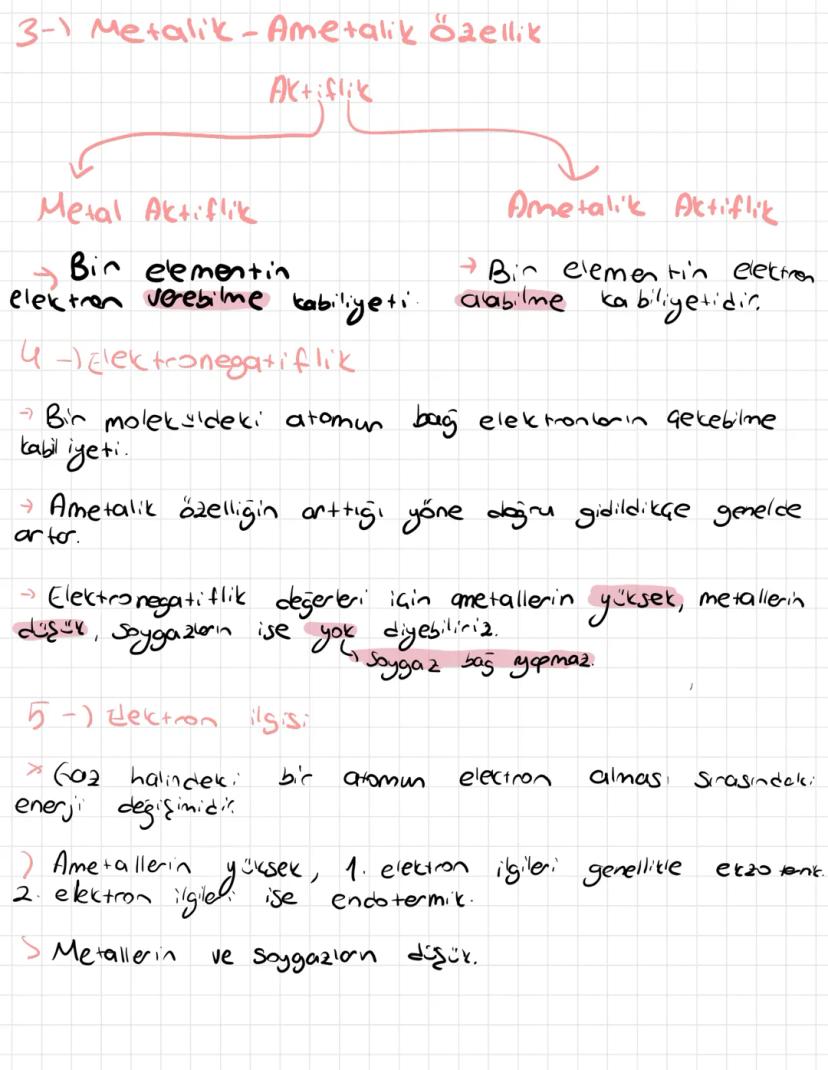 3-) Metalik - Ametalik Özellik
Aktiflik
Metal Aktiflik
Ametalik Aktiflik
→ Bir elementin
elektron verebilme kabiliyeti.
→ Bir elementin elektron
alabilme kabiliyetidir.
4-) Elektronegatiflik
→ Bir moleküldeki atomun bağ elektronların çekebilme
kabiliyeti.
→ Ametalik özelliğin arttığı yöne doğru gidildikçe genelde
artar.
→ Elektronegatiflik değerleri için ametallerin yüksek, metallerin
düşük, soygazların ise yok diyebiliriz.
↳ Soygaz bağ yapmaz.
5-) Elektron ilgisi
> Gaz halindeki bir atomun elektron alması sırasındaki
enerji değişimidir.
) Ametallerin yüksek, 1. elektron ilgileri genellikle
2. elektron ilgileri ise endotermik.
> Metallerin ve soygazların düşük.